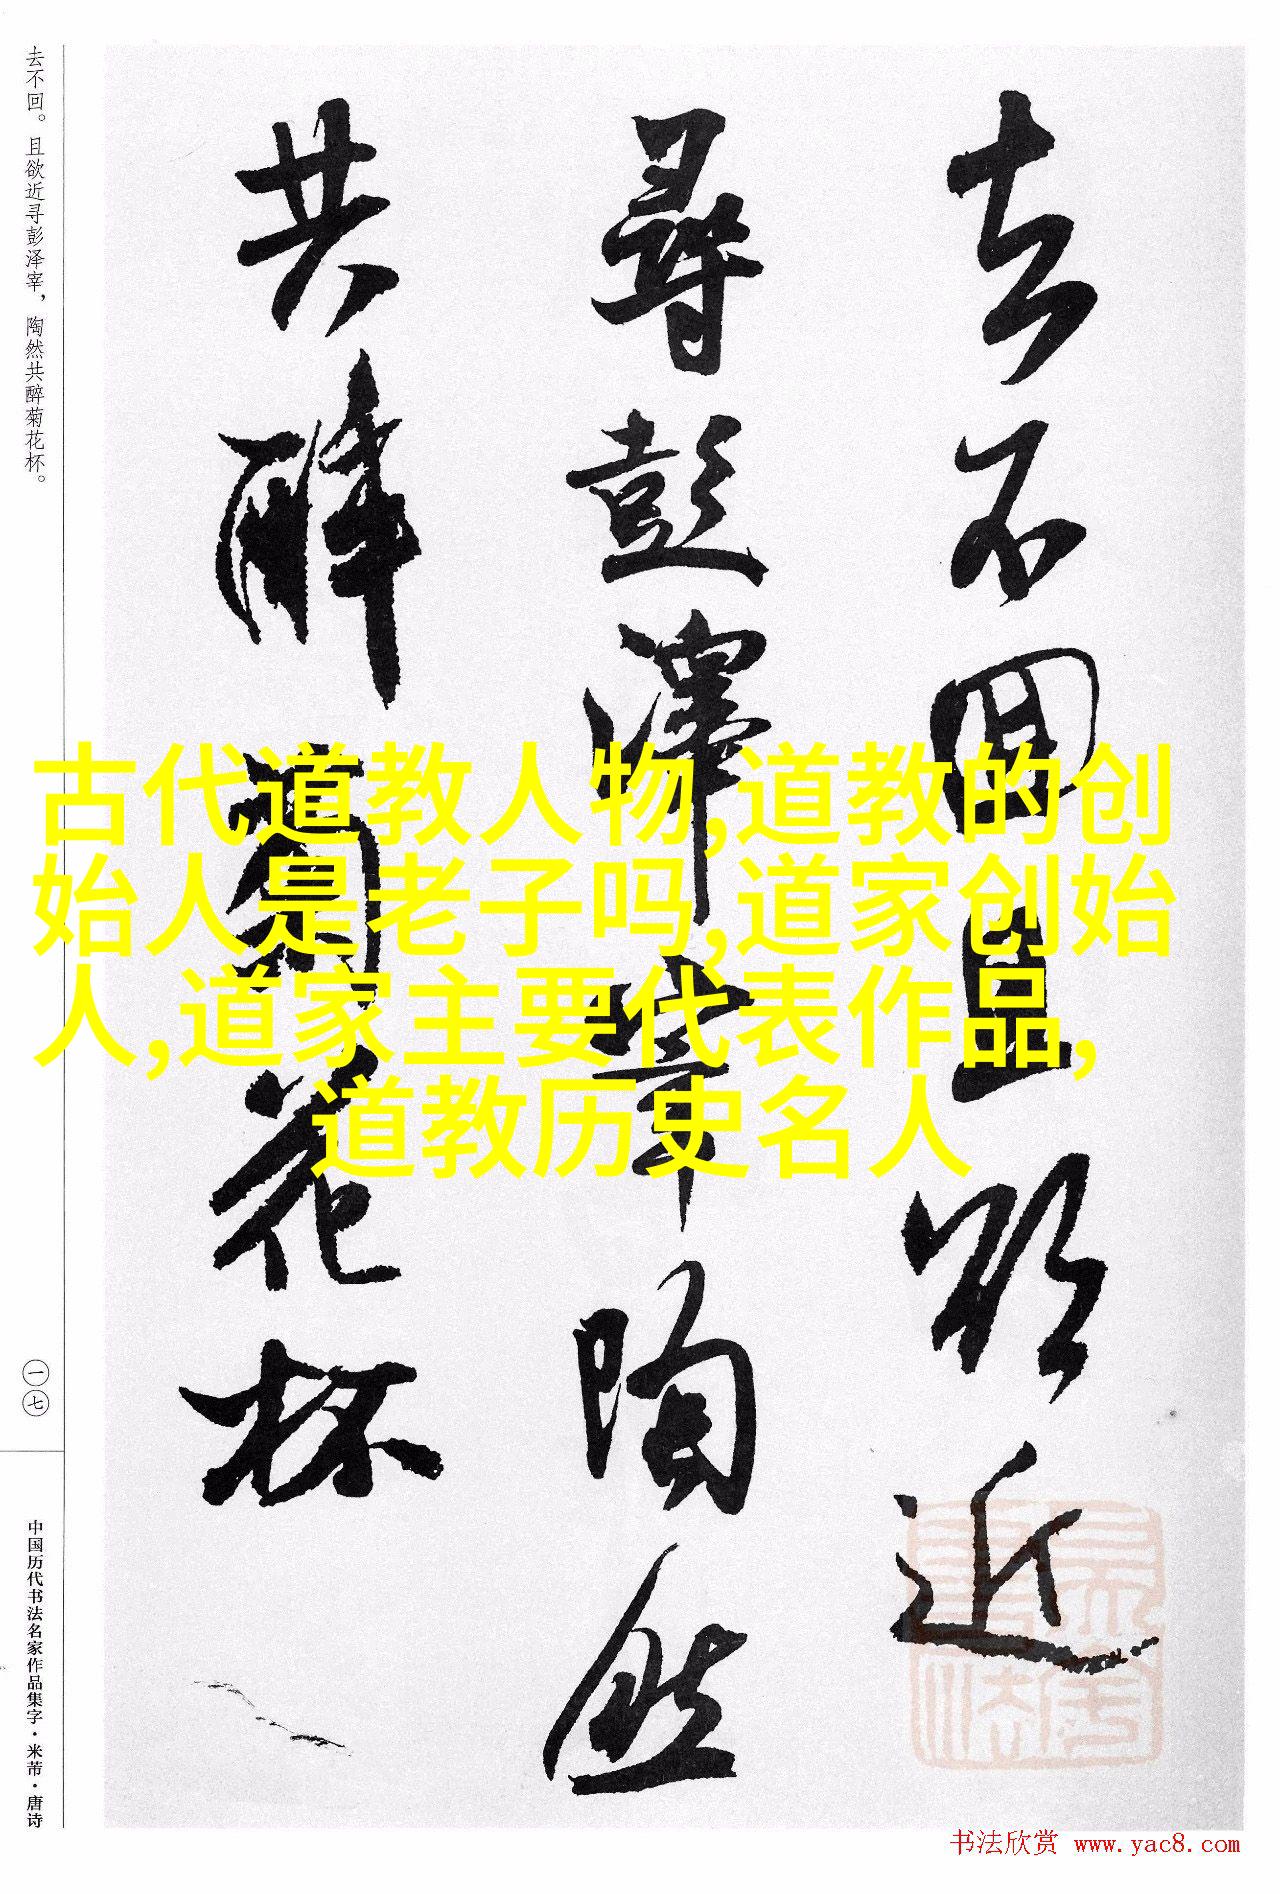 去不回且欲近
寻彭泽宰陶然
共醉菊花杯
去不回。且欲近寻彭泽宰，陶然共醉菊花杯。
一七
中国历代书法名家作品集字·米芾·唐诗
古代道教人物,道教的创
始人是老子吗,道家创始
人,道家主要代表作品,
道教历史名人
书法欣赏 www.yac8.com